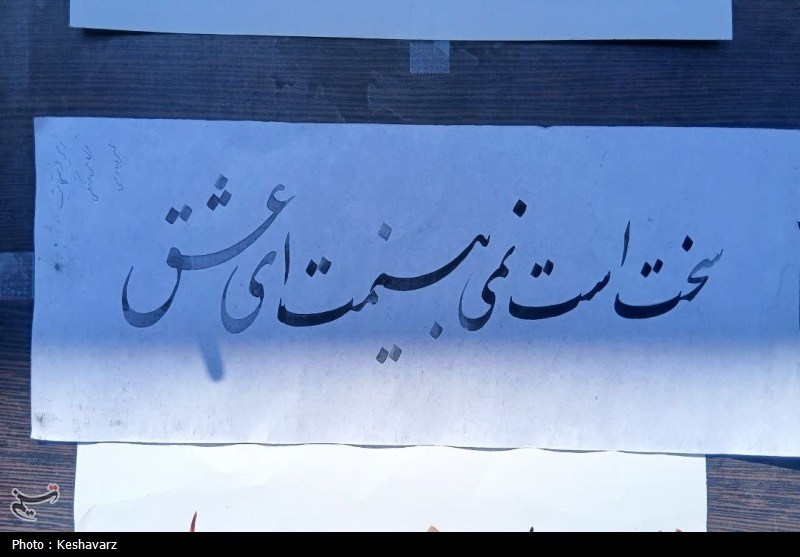 سخت است نمی بینمت ای عشق
تسنیم
Photo : Keshavarz